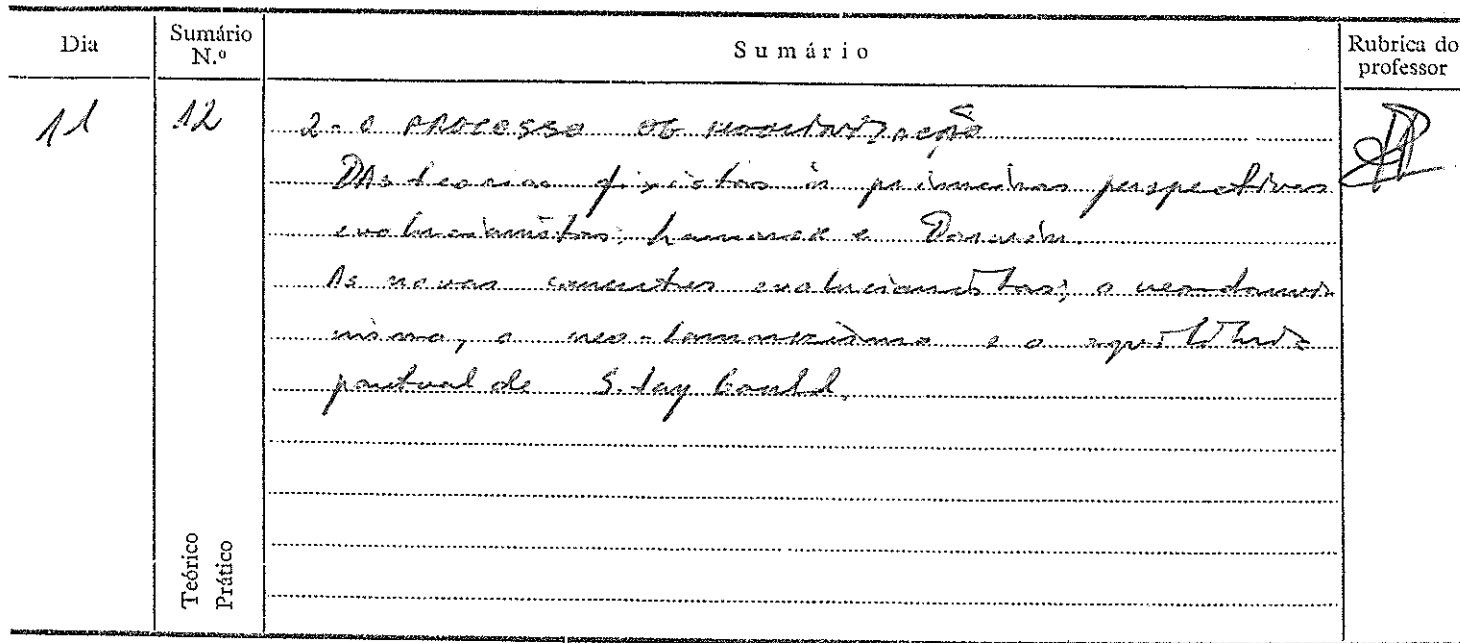 Dia
Sumário N.º
Sumário
Rubrica do professor
11
12
2 - O PROCESSO DE HOMINIZAÇÃO
DAs teorias fixistas às primeiras perspectivas
evolucionistas: Lamarck e Darwin.
As novas correntes evolucionistas; o neo-darwi
nismo, o neo-lamarckismo e o equilíbrio
pontual de S. Jay Gould.
Teórico
Prático